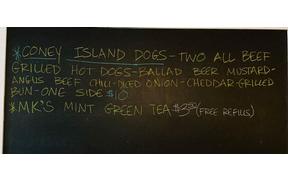 *CONEY ISLAND DOGS-TWO ALL BEEF
GRILLED HOT DOGS-BALLAD BEER MUSTARD-
ANGUS BEEF CHILI-DICED ONION-CHEDDAR-GRILLED
BUN-ONE SIDE $10
*MK'S MINT GREEN TEA (FREE REFILLS)